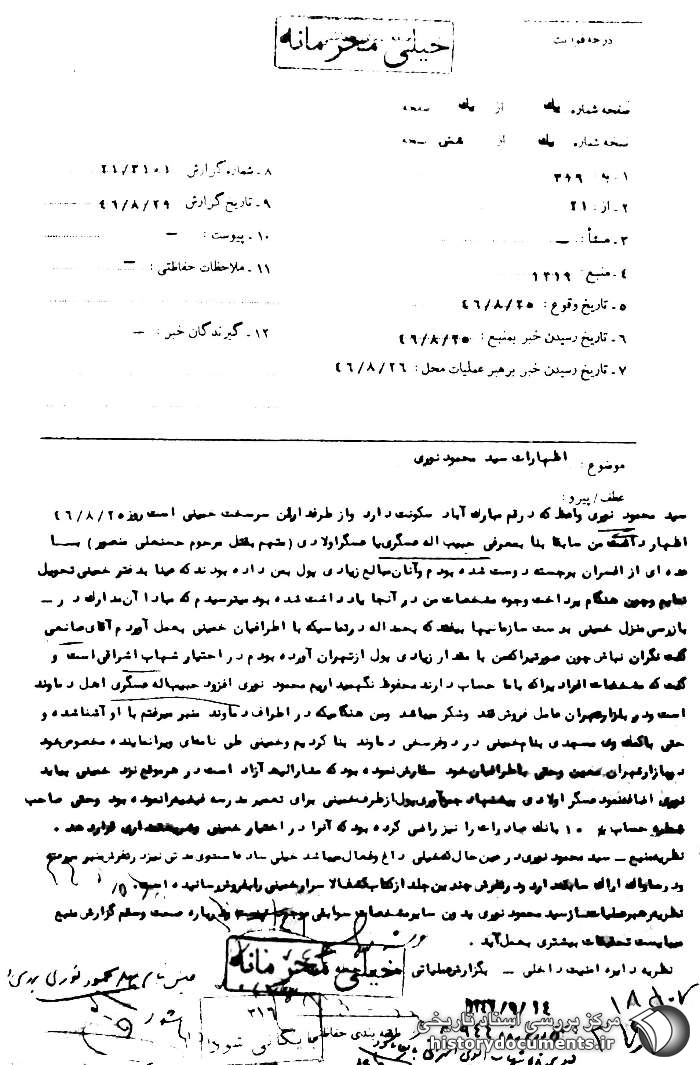 خیلی محرمانه
درجه فوریت
صفحه شماره یک از یک صفحه
نسخه شماره یک از شش نسخه
۱ ـ به : ۳۱۶
۸ ـ شماره گزارش ۲۱/۳۱۰۱
۲ ـ از : ۲۱
۹ ـ تاریخ گزارش ۴۶/۸/۲۹
۳ ـ منشأ : ـ
۱۰ ـ پیوست : ـ
۴ ـ منبع : ۱۳۱۹
۱۱ ـ ملاحظات حفاظتی : ـ
۵ ـ تاریخ وقوع : ۴۶/۸/۲۵
۶ ـ تاریخ رسیدن خبر بمنبع : ۴۶/۸/۲۵
۱۲ ـ گیرندگان خبر : ـ
۷ ـ تاریخ رسیدن خبر برهبر عملیات محل : ۴۶/۸/۲۶
موضوع : اظهارات سید محمود نوری
عطف / پیرو :
سید محمود نوری واعظ که در قم مبارک آباد سکونت دارد و از طرفداران سرسخت خمینی است روز ۴۶/۸/۲۵
اظهار داشت من سابقا بنا بمعرفی حبیب اله عسگری یا عسگراولادی (متهم بقتل مرحوم حسنعلی منصور) بـا
عده ای از افسران برجسته دوست شده بودم و آنان مبالغ زیادی پول بمن داده بودند که عینا بدفتر خمینی تحویل
نمایم و چون هنگام پرداخت وجوه مشخصات من در آنجا یادداشت شده بود میترسیدم که مبادا آن مدارک در ـ
بازرسی منزل خمینی بدست سازمانیها بیفتد که بحمداله در تماسیکه با اطرافیان خمینی بعمل آوردم آقای صانعی
گفت نگران نباش چون صورتیرا که من با مقدار زیادی پول از تهران آورده بودم در اختیار شهاب اشراقی است و
گفت که مشخصات افرادیرا که با ما حساب دارند محفوظ نگهمیداریم محمود نوری افزود حبیب اله عسگری اهل دماوند
است و در بازار تهران عامل فروش قند و شکر میباشد و من هنگامیکه در اطراف دماوند منبر میرفتم با او آشنا شده و
حتی با کمک وی مسجدی بنام خمینی در دو فرسخی دماوند بنا کردیم و خمینی طی نامه‌ای ویرا نماینده مخصوص خود
در بازار تهران معین و حتی باطرافیان خود سفارش نموده بود که مشارالیه آزاد است در هر موقع نزد خمینی بیاید
نوری اضافه نمود عسگراولادی پیشنهاد جمع‌آوری پول از طرف خمینی برای تعمیر مدرسه فیضیه را نموده بود و حتی صاحب
حساب ۱۰۰ بانک صادرات را نیز راضی کرده بود که آنرا در اختیار خمینی قرار دهد .
نظریه منبع ـ سید محمود نوری در عین حال که خیلی داغ و فعال میباشد خیلی ساده
و در ساواک اراک سابقه دارد و در فروش چندین جلد از کتاب کشف الاسرار خمینی را بفروش رسانیده است .
نظریه رهبر عملیات ـ از سید محمود نوری بدون سایر مشخصات سوابقی موجود نیست و درباره صحت و سقم گزارش منبع
میبایست تحقیقات بیشتری بعمل آید .
نظریه دایره امنیت داخلی ـ بگزارش عملیاتی
خیلی محرمانه
۳۱۶
طبقه بندی حفاظتی
بایگانی شود
مرکز بررسی اسناد تاریخی
historydocuments.ir